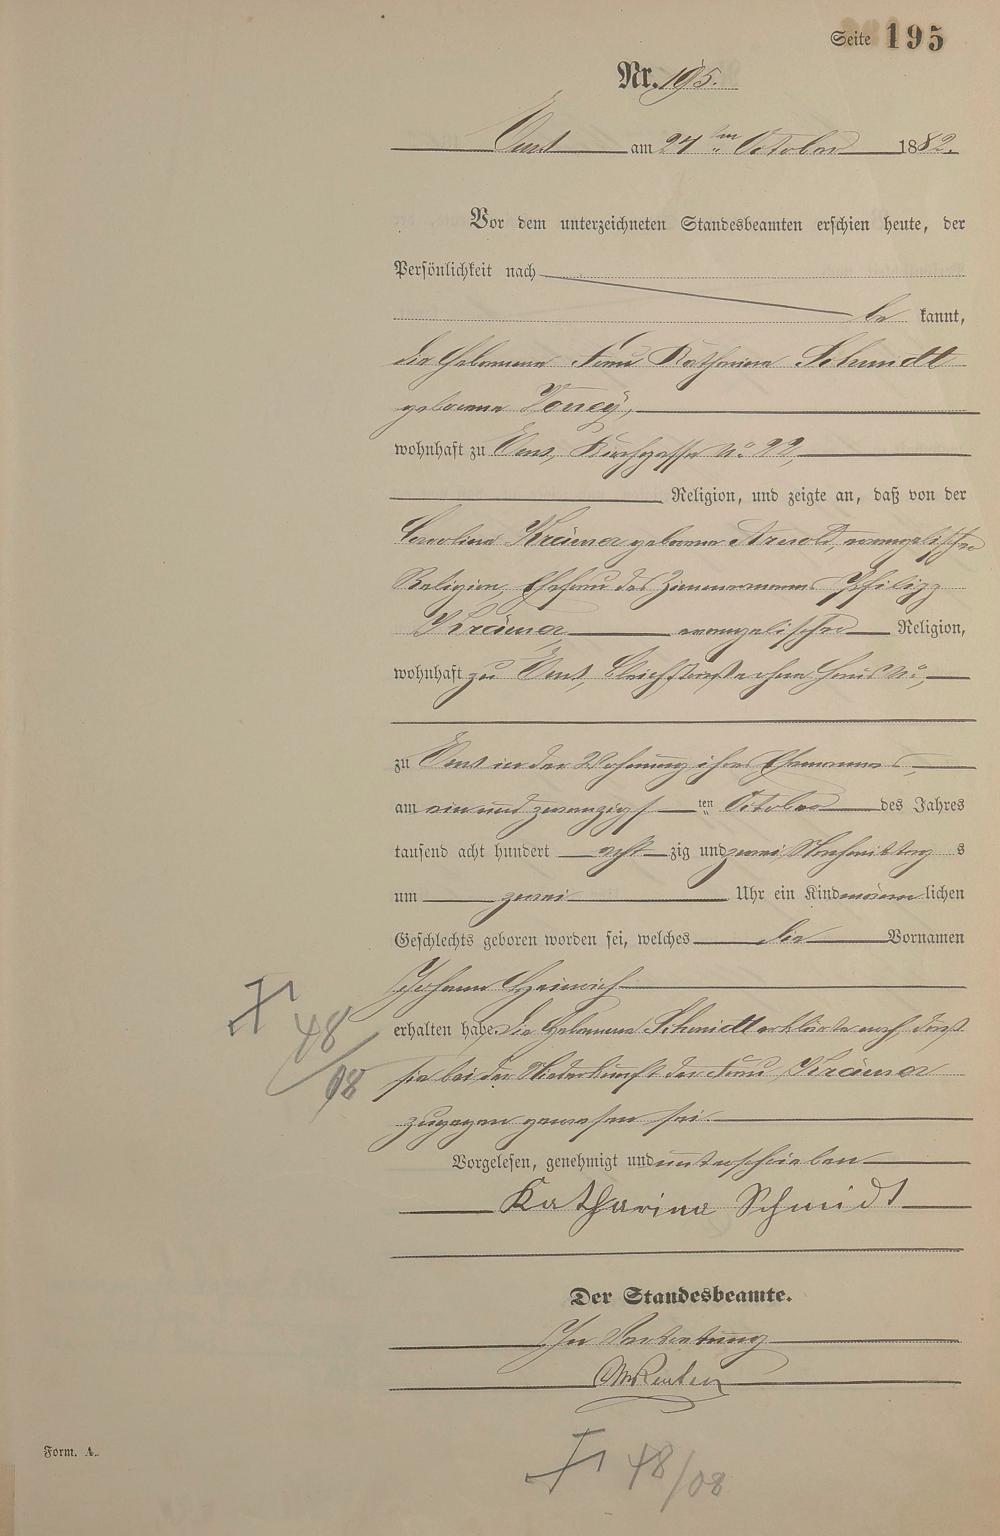 Seite 195
Nr. 195.
Ems am 24ten October 1882.
Vor dem unterzeichneten Standesbeamten erschien heute, der
Persönlichkeit nach
be kannt,
die Hebamme Frau Katharina Schmidt
geborene
wohnhaft zu Ems, Kirchgasse No. 22,
Religion, und zeigte an, daß von der
Carolina Krämer geborene Arnold, evangelischer
Religion, Ehefrau des Zimmermanns Philipp
Krämer evangelischer Religion,
wohnhaft zu Ems, Bleichstraße ohne Haus No.,
zu Ems in der Wohnung ihres Ehemannes,
am ein und zwanzigsten October des Jahres
tausend acht hundert achtzig und zwei Nachmittags
um zwei Uhr ein Kind männlichen
Geschlechts geboren worden sei, welches die Vornamen
Johann Heinrich
erhalten habe. Die Hebamme Schmidt erklärte noch, daß
sie bei der Niederkunft der Frau Krämer
zugegen gewesen sei.
48/08
Vorgelesen, genehmigt und unterschrieben
Katharina Schmidt
Der Standesbeamte.
In Vertretung
48/08
Form. A.